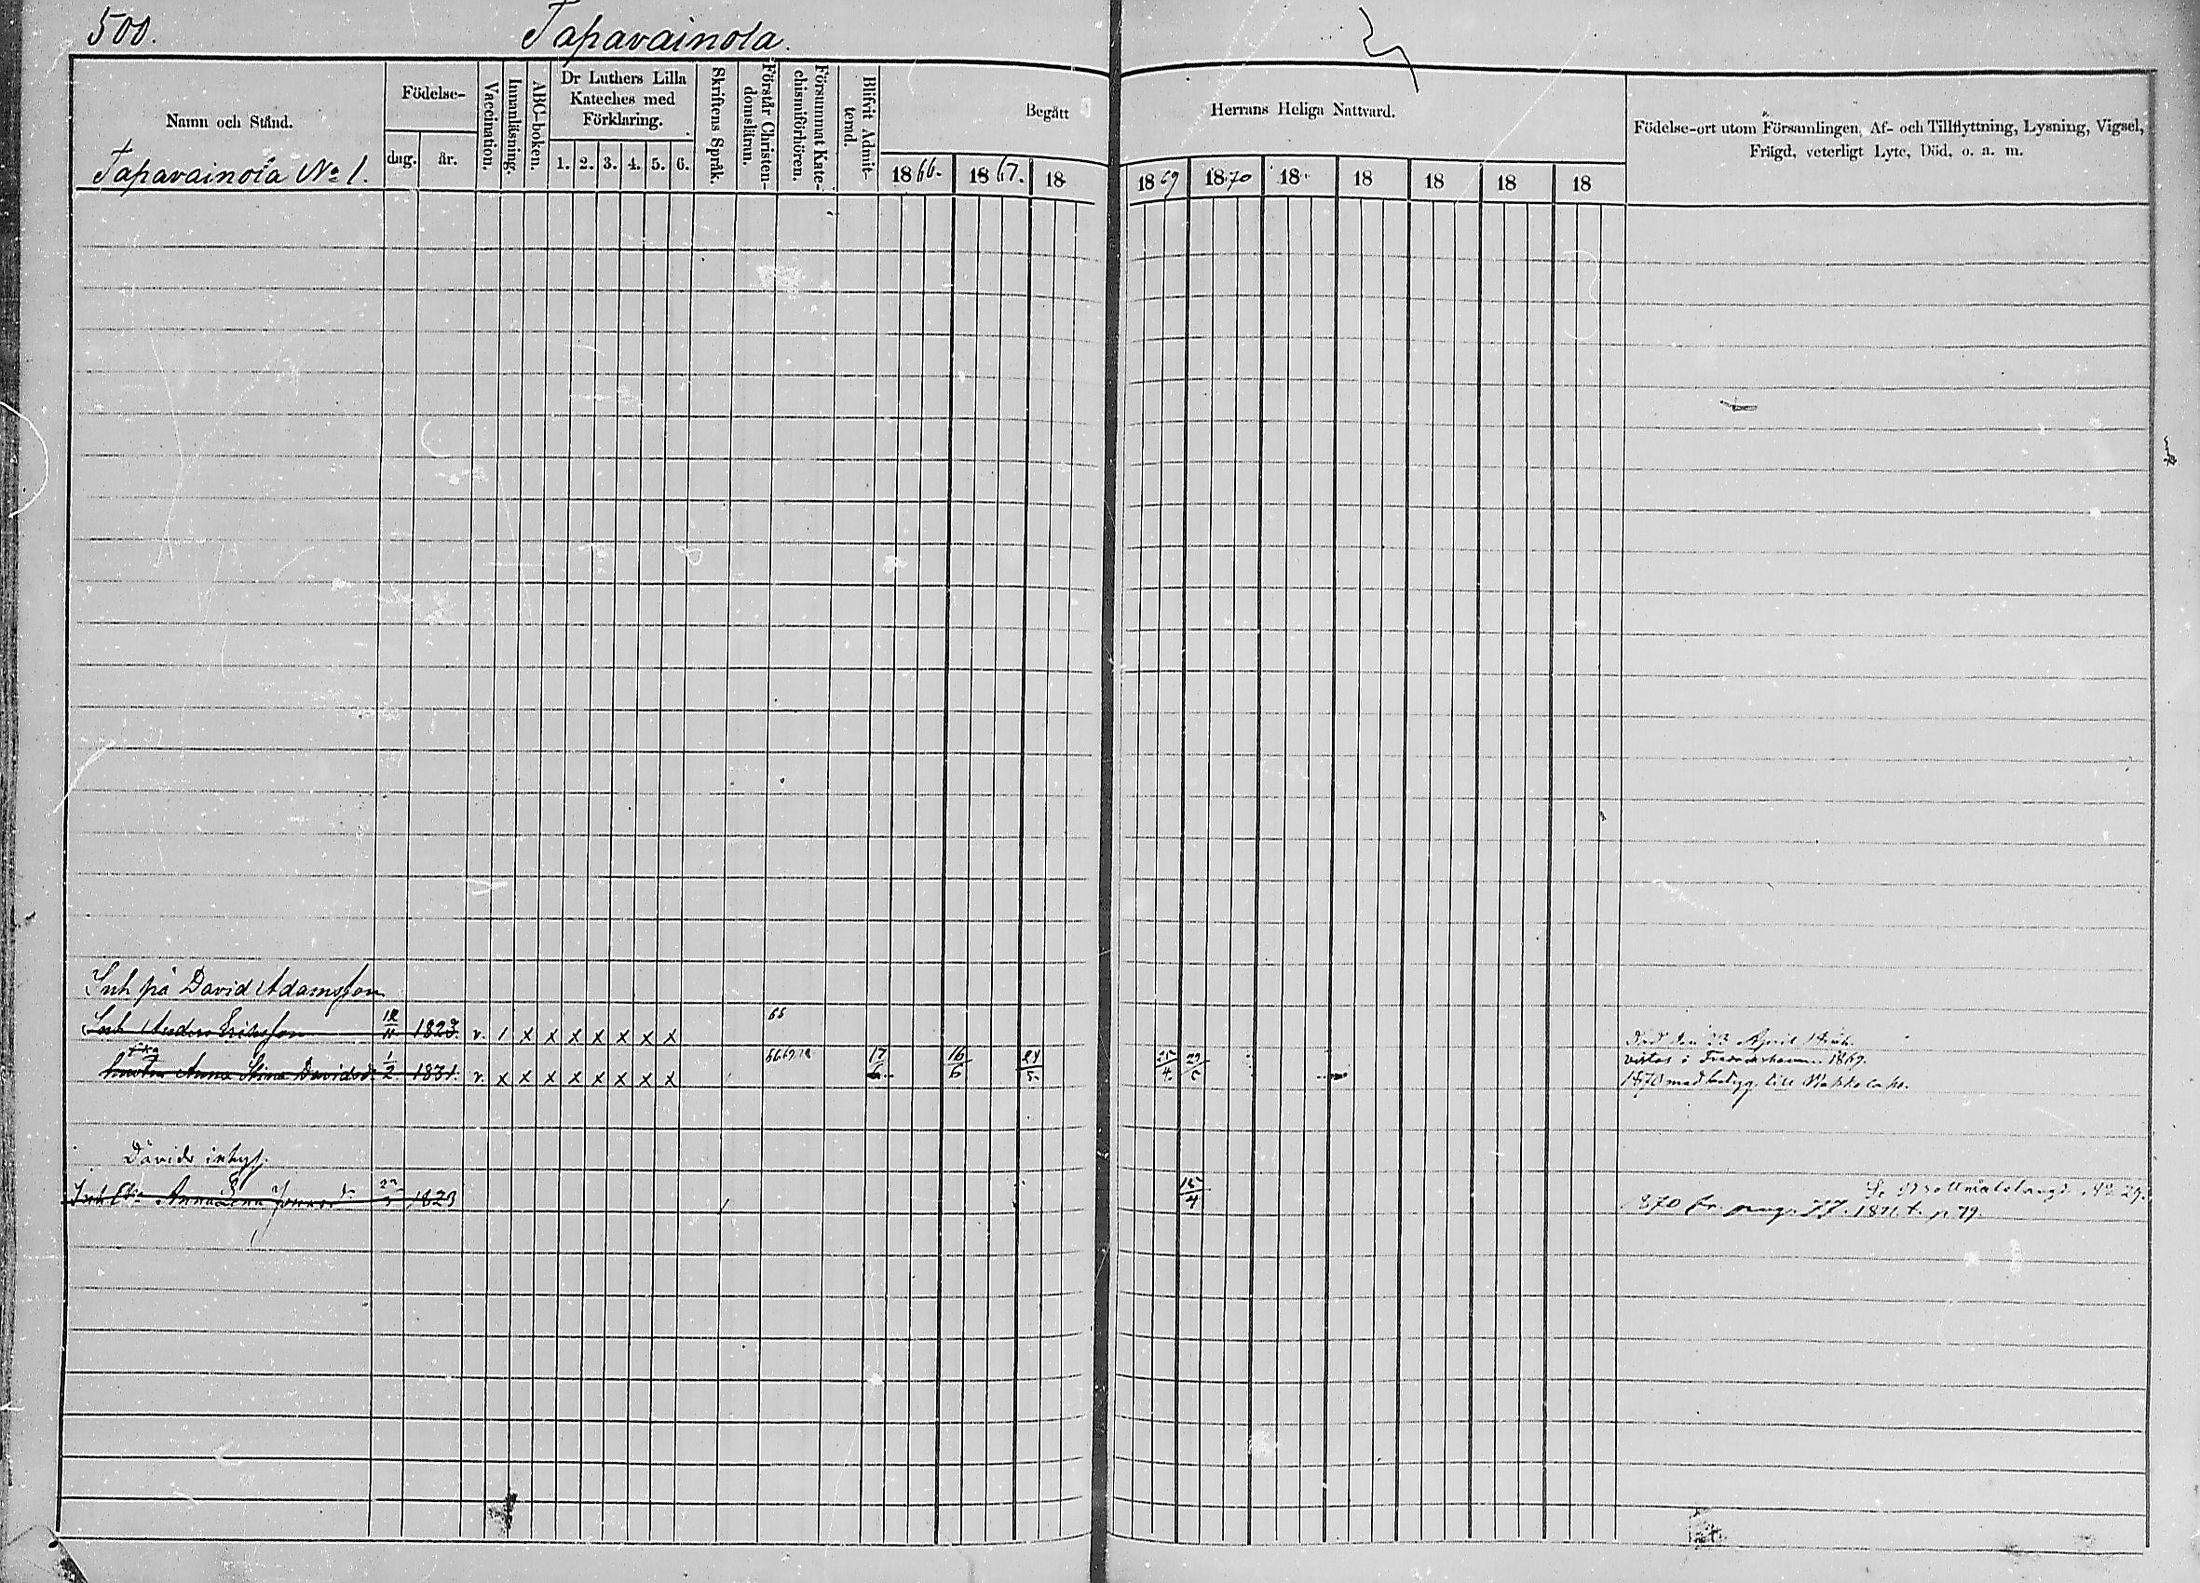 500.
Tapavainola.
Namn och Stånd.
Födelse-
dag.
år.
Vaccination.
Innanläsning.
ABC-boken.
Dr Luthers Lilla
Kateches med
Förklaring.
1. 2. 3. 4. 5. 6.
Skriftens Språk.
Förstår Christen-
domsläran.
Försummat Kate-
chismiförhören.
Blifvit Admit-
terad.
Begått
Herrans Heliga Nattvard.
1866. 1867. 18 1869 1870 18 18 18 18 18
Födelse-ort utom Församlingen, Af- och Tillflyttning, Lysning, Vigsel,
Frägd, veterligt Lyte, Död, o. a. m.
Tapavainola No 1.
Inh på David Adamsson
Inh Anders Ericsson 1823. v. 1 x x x x x x x 66
Död den 23 April
Anna Stina Davidsdr 1/2 1831. v. x x x x x x x x 17/6 16/6 24/5 25/4 29/5
vistas i Fredrikshamn 1869.
1870 med betyg. till
Davids inhys.
Inh Anna Lena 1823 15/4
No 29.
1870 fr. pag. 77. 1871 t. p. 79.